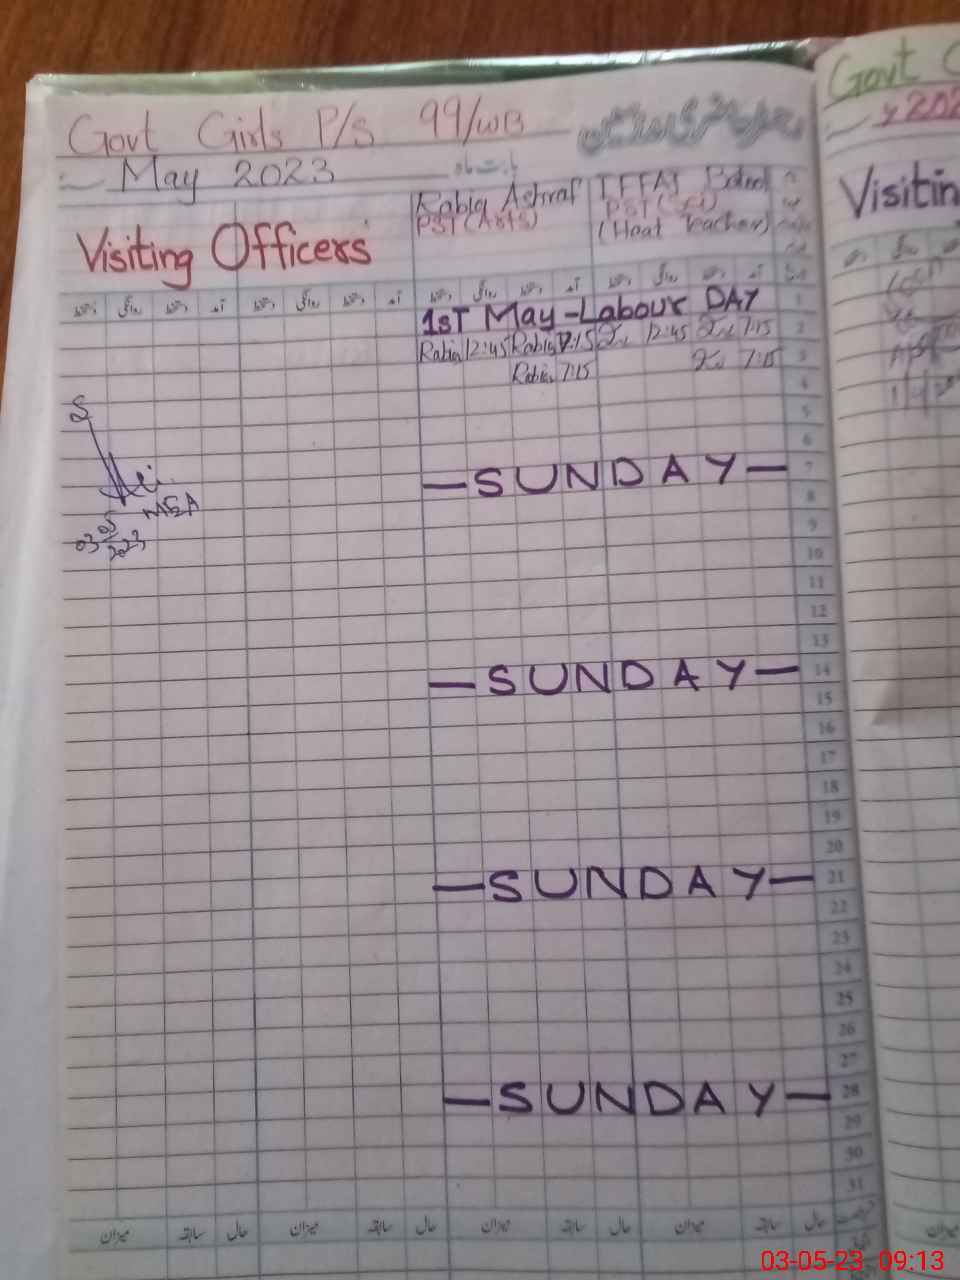 Govt Girls P/S 99/WB
May 2023 بابت ماہ
Visiting Officers
Rabia Ashraf
PST (Arts)
IFFAT Batool
PST (Sci)
(Heat Teacher)
دستخط روانگی دستخط آمد دستخط روانگی دستخط آمد دستخط روانگی دستخط آمد دستخط روانگی دستخط آمد
1ST May-Labour DAY
Rabia 12:45 Rabia 7:15 12:45 7:15 2
Rabia 7:15 7:15 3
4
5
6
—SUNDAY— 7
8
9
10
11
12
13
—SUNDAY— 14
15
16
17
18
19
20
—SUNDAY— 21
22
23
24
25
26
27
—SUNDAY— 28
29
30
31
MEA
03 05 2023
حال سابقہ میزان حال سابقہ میزان حال سابقہ میزان حال سابقہ میزان
Govt
202
Visitin
03-05-23 09:13